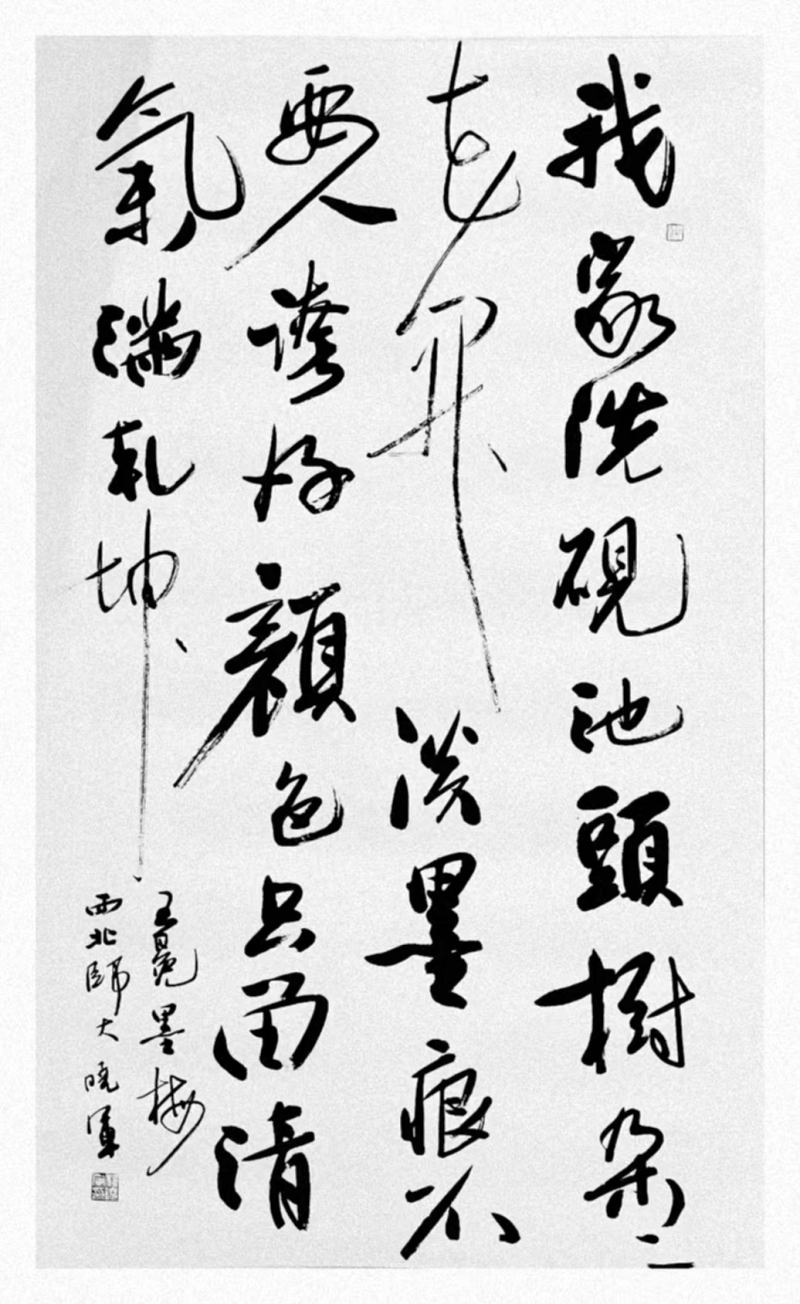 我家洗硯池頭樹朵〻
花開淡墨痕不
要人誇好顏色只留清
氣滿乾坤
王冕墨梅
西北師大曉軍